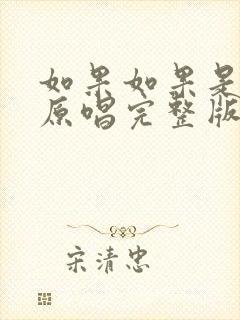 如果如果是
原唱完整版
宋清忠